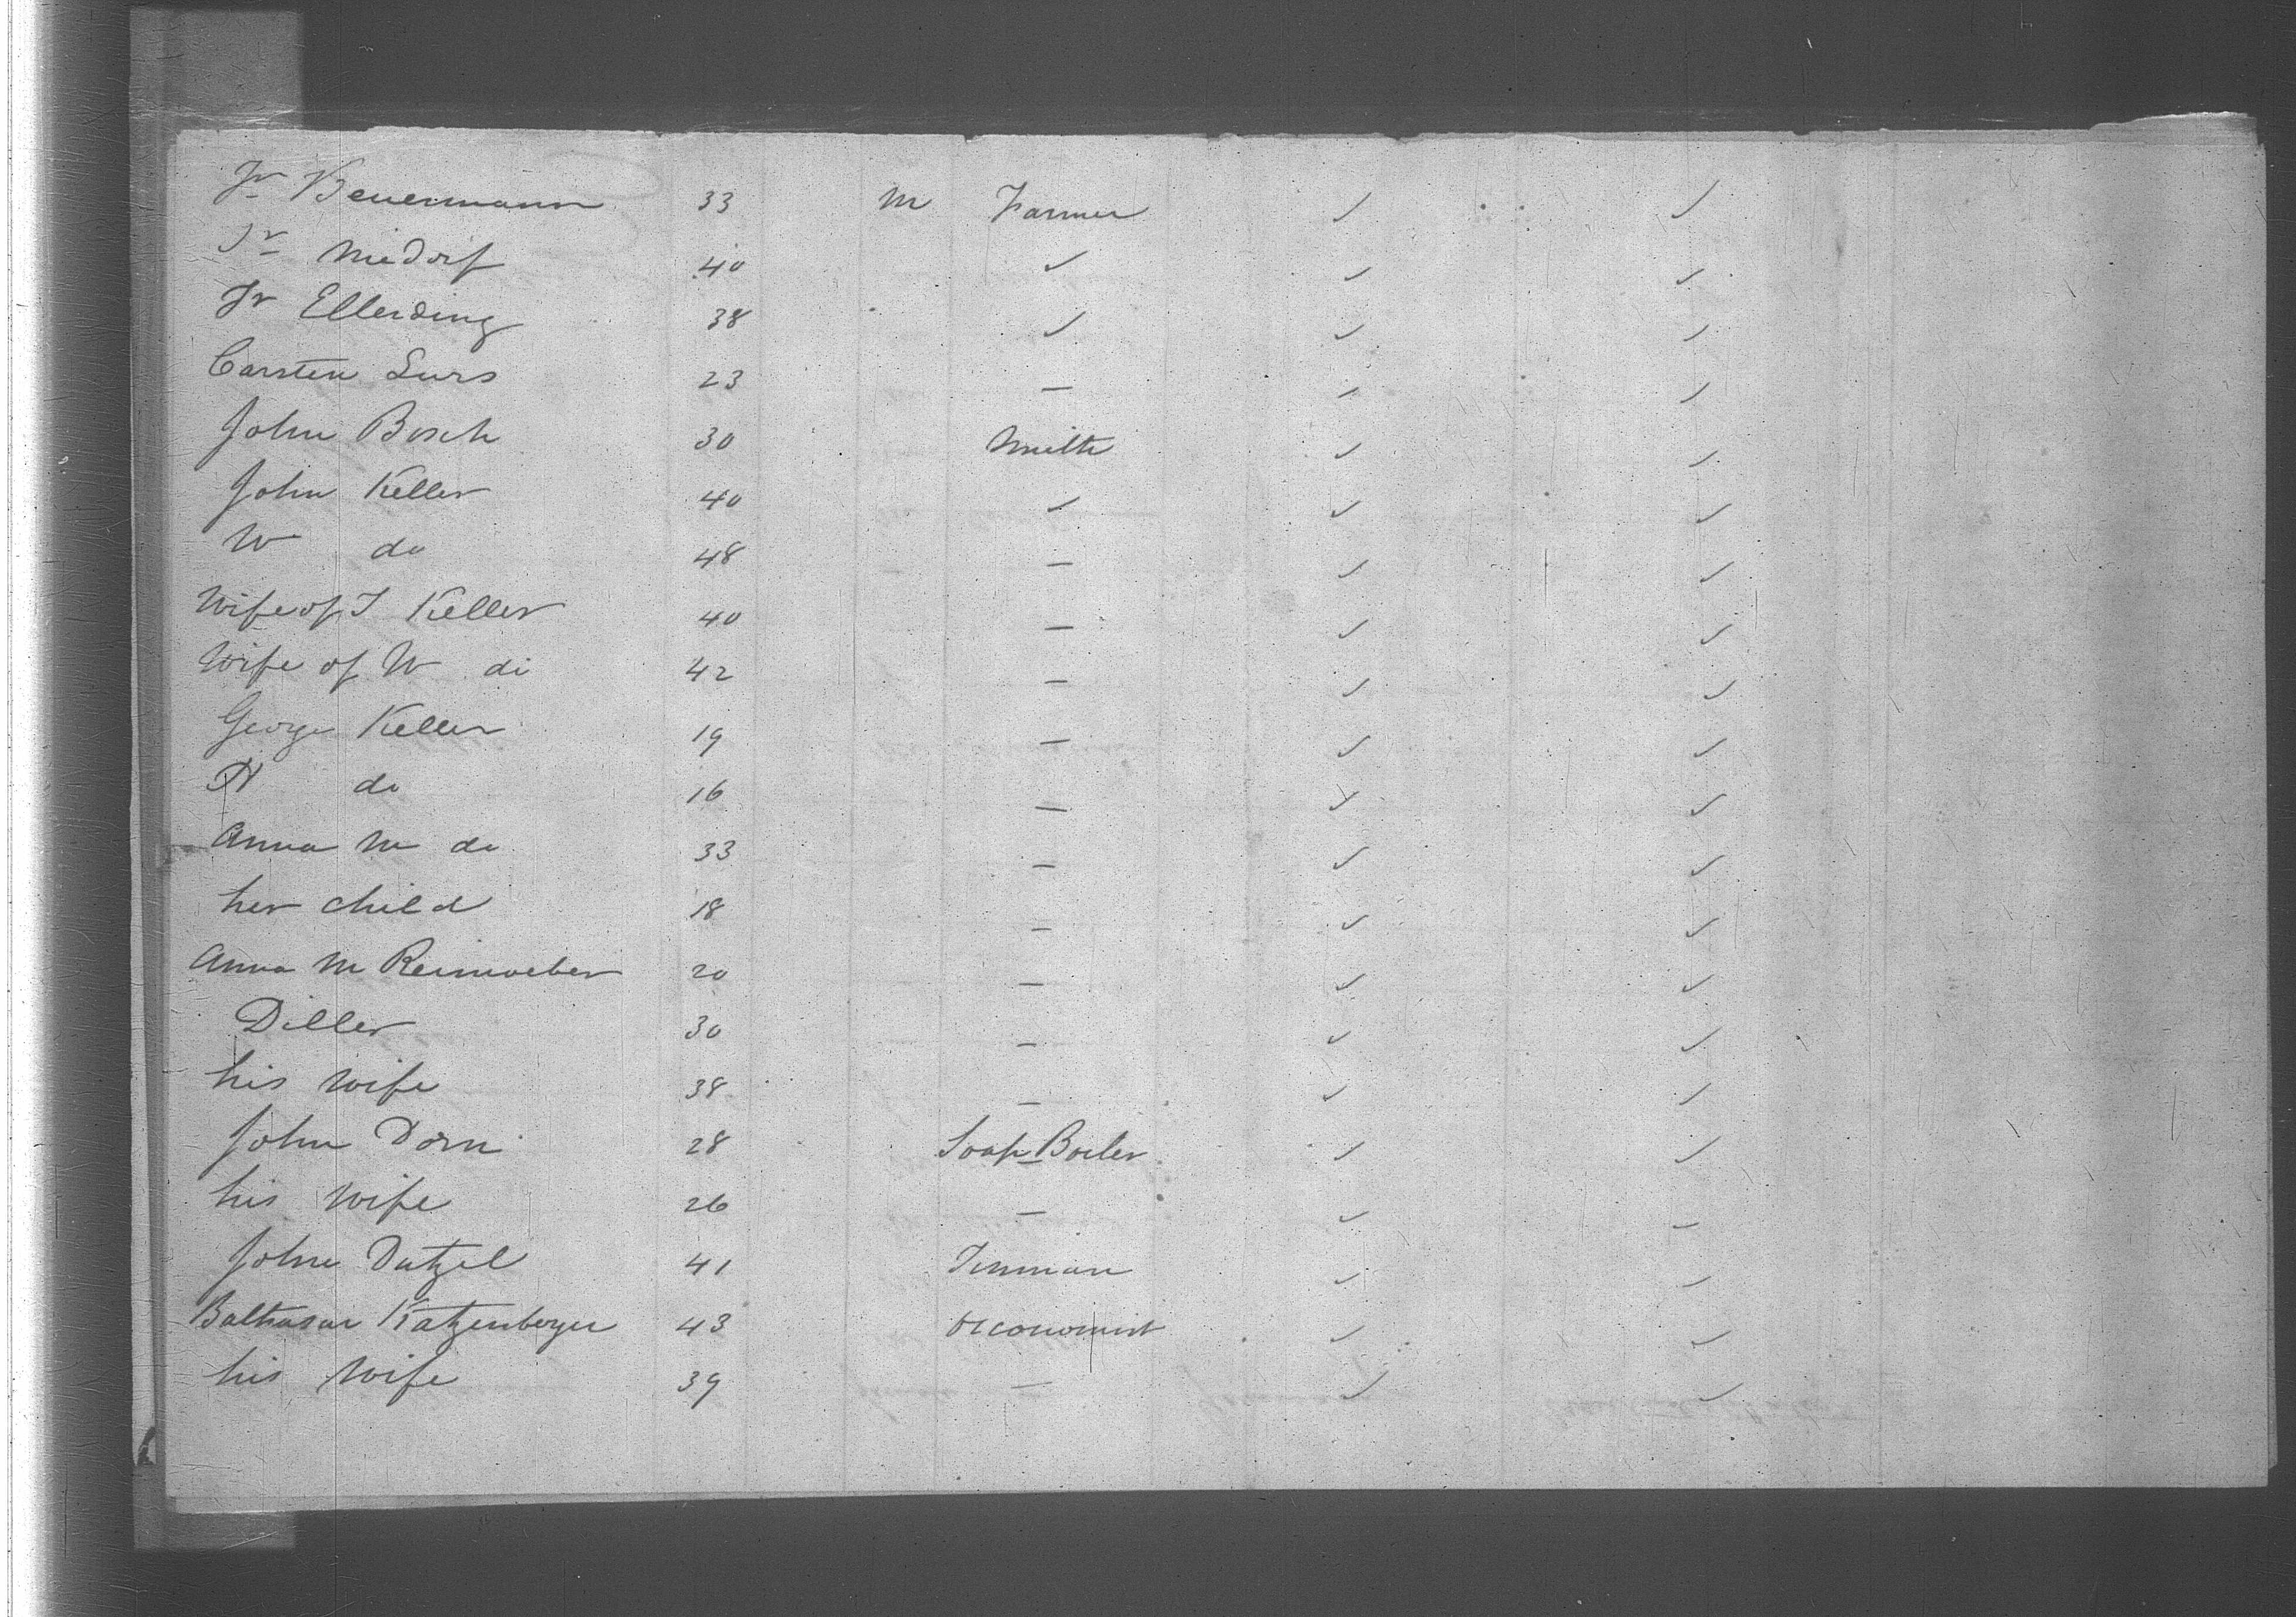 Fr Beuermann 33 M Farmer ✓ ✓
Fr Niedorf 40 ✓ ✓ ✓
Fr Ellerding 38 ✓ ✓ ✓
Carsten Lurs 23 — ✓ ✓
John Bosch 30 Smith ✓ ✓
John Keller 40 ✓ ✓ ✓
W do 48 — ✓ ✓
Wife of J Keller 40 — ✓ ✓
Wife of W do 42 — ✓ ✓
George Keller 19 — ✓ ✓
do 16 — ✓ ✓
Anna M do 33 — ✓ ✓
her child 18 — ✓ ✓
Anna M Reinweber 20 — ✓ ✓
Diller 30 — ✓ ✓
his wife 38 — ✓ ✓
John Dorn 28 Soap Boiler ✓ ✓
his wife 26 — ✓ ✓
John Dutzel 41 Tinman ✓ ✓
Balthasar Katzenberger 43 Oeconomist ✓ ✓
his wife 39 — ✓ ✓